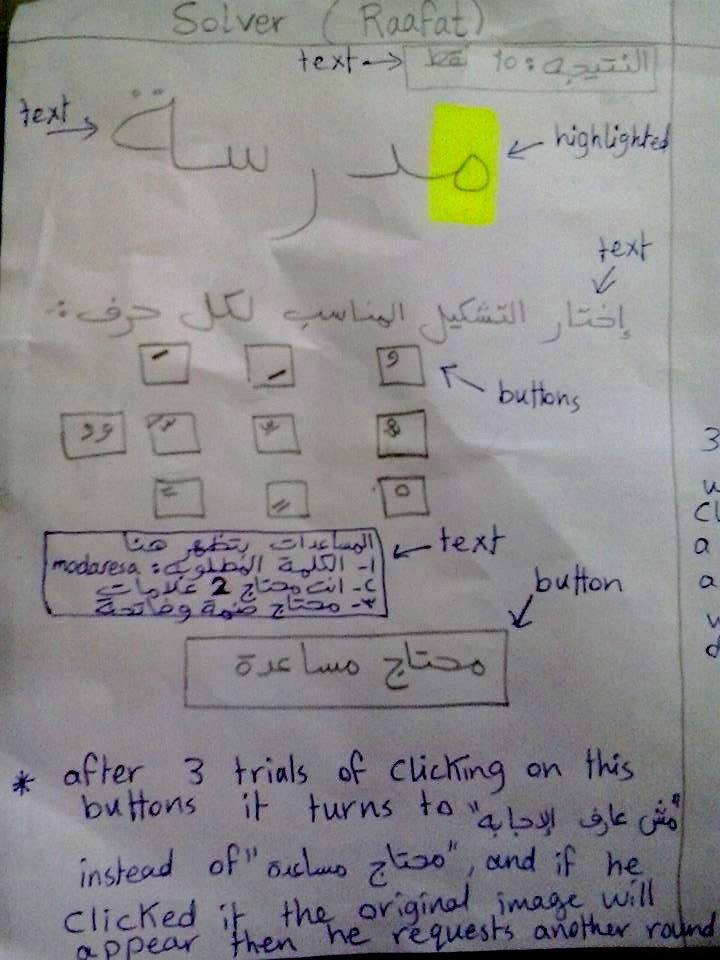 Solver (Raafat)
text → النتيجه: 10 نقط
text
مدرسة
highlighted
text
إختار التشكيل المناسب لكل حرف:
buttons
المساعدات بتظهر هنا
١- الكلمة المطلوبة: madaresa
٢- انت محتاج 2 علامات
٣- محتاج ضمة وفاتحة
text
button
محتاج مساعدة
* after 3 trials of clicking on this
buttons it turns to "مش عارف الإجابه"
instead of "محتاج مساعدة", and if he
clicked it the original image will
appear then he requests another round
3
a
a